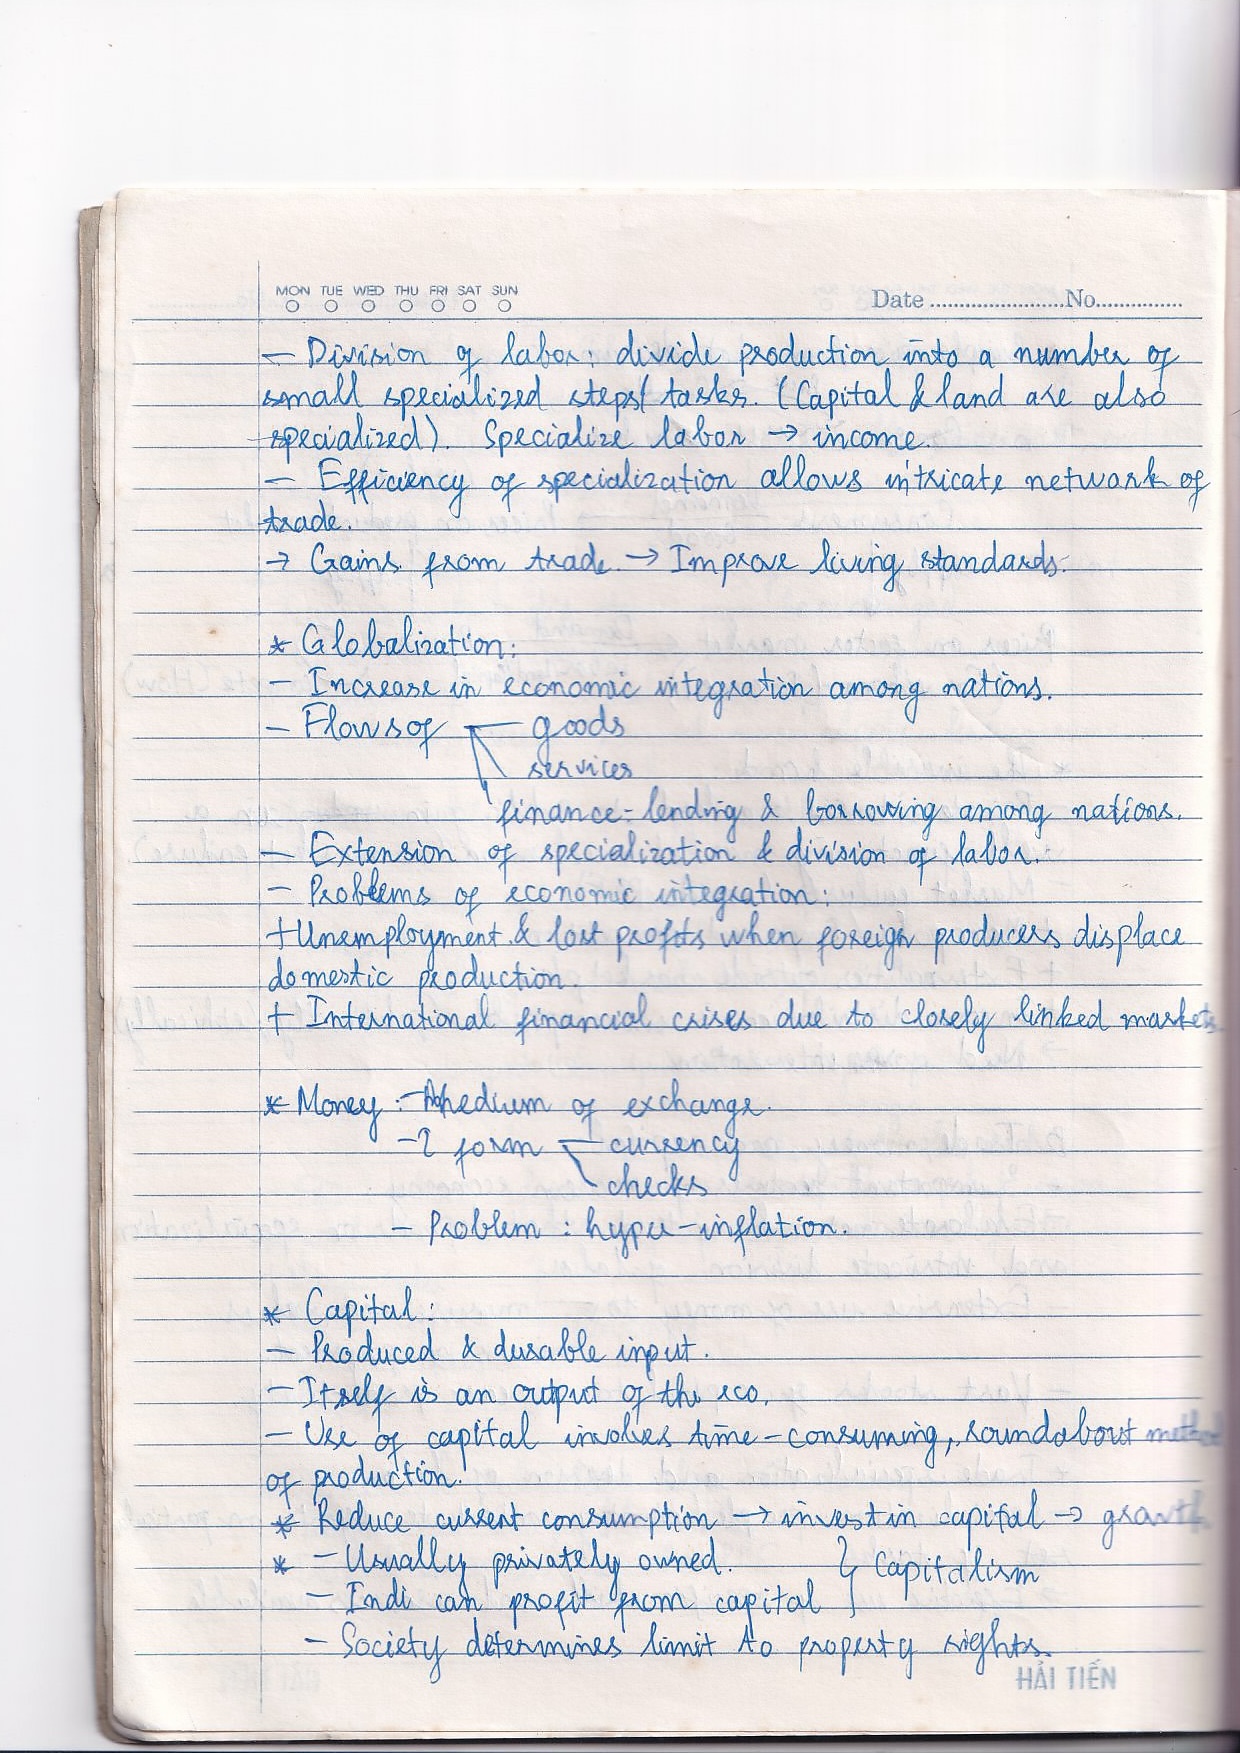 MON TUE WED THU FRI SAT SUN
Date ........................No................
- Division of labor: divide production into a number of
small specialized steps/ tasks. (Capital & land are also
specialized). Specialize labor → income.
- Efficiency of specialization allows intricate network of
trade.
→ Gains from trade → Improve living standards.
* Globalization:
- Increase in economic integration among nations.
- Flows of — goods
services
finance - lending & borrowing among nations.
- Extension of specialization & division of labor.
- Problems of economic integration:
+ Unemployment & lost profits when foreign producers displace
domestic production.
+ International financial crises due to closely linked markets
* Money : - Medium of exchange.
- 2 form — currency
checks
- Problem : hyper-inflation.
* Capital :
- Produced & durable input.
- Itself is an output of the eco.
- Use of capital involves time-consuming, roundabout method
of production.
* Reduce current consumption → invest in capital → growth
* - Usually privately owned. } Capitalism
- Indi can profit from capital
- Society determines limit to property rights.
HẢI TIẾN